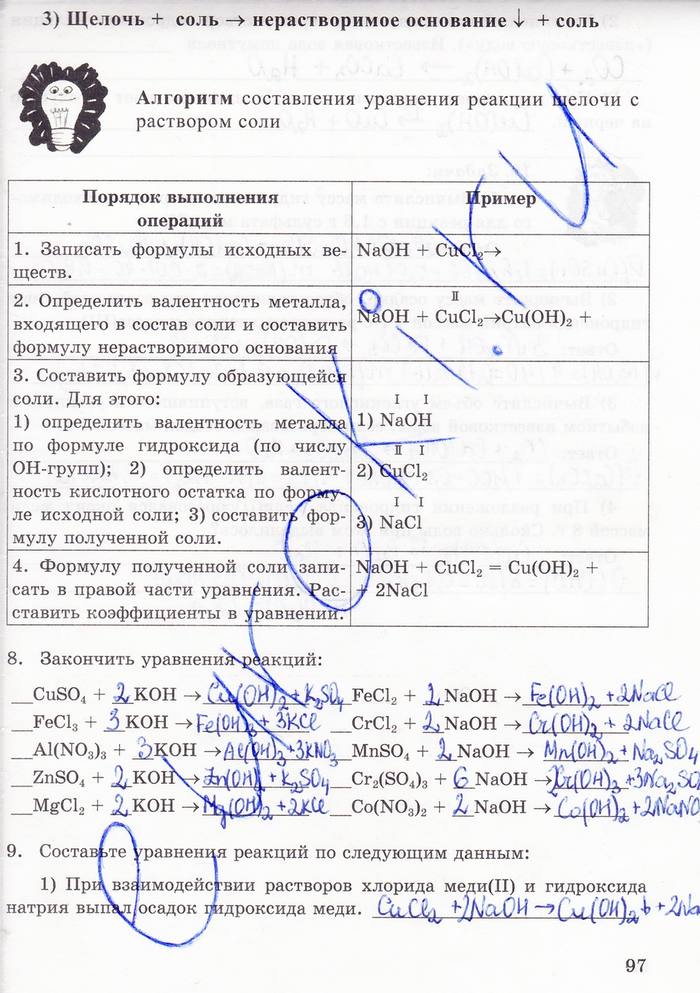 3) Щелочь + соль → нерастворимое основание ↓ + соль
Алгоритм составления уравнения реакции щелочи с
раствором соли
Порядок выполнения
операций
Пример
1. Записать формулы исходных ве-
ществ.
NaOH + CuCl₂→
2. Определить валентность металла,
входящего в состав соли и составить
формулу нерастворимого основания
II
NaOH + CuCl₂→Cu(OH)₂ +
3. Составить формулу образующейся
соли. Для этого:
1) определить валентность металла
по формуле гидроксида (по числу
ОН-групп); 2) определить валент-
ность кислотного остатка по форму-
ле исходной соли; 3) составить фор-
мулу полученной соли.
I I
1) NaOH
II
2) CuCl₂
I I
3) NaCl
4. Формулу полученной соли запи-
сать в правой части уравнения. Рас-
ставить коэффициенты в уравнении.
NaOH + CuCl₂ = Cu(OH)₂ +
+ 2NaCl
8. Закончить уравнения реакций:
__CuSO₄ + 2 KOH → Cu(OH)₂ + K₂SO₄ __FeCl₂ + 2 NaOH → Fe(OH)₂ + 2NaCl
__FeCl₃ + 3 KOH → Fe(OH)₃ + 3KCl __CrCl₂ + 2 NaOH → Cr(OH)₂ + 2NaCl
__Al(NO₃)₃ + 3 KOH → Al(OH)₃ + 3KNO₃ __MnSO₄ + 2 NaOH → Mn(OH)₂ + Na₂SO₄
__ZnSO₄ + 2 KOH → Zn(OH)₂ + K₂SO₄ __Cr₂(SO₄)₃ + 6 NaOH → 2Cr(OH)₃ + 3Na₂SO
__MgCl₂ + 2 KOH → Mg(OH)₂ + 2KCl __Co(NO₃)₂ + 2 NaOH → Co(OH)₂ + 2NaNO
9. Составьте уравнения реакций по следующим данным:
1) При взаимодействии растворов хлорида меди(II) и гидроксида
натрия выпал осадок гидроксида меди. CuCl₂ + 2NaOH → Cu(OH)₂↓ + 2Na
97